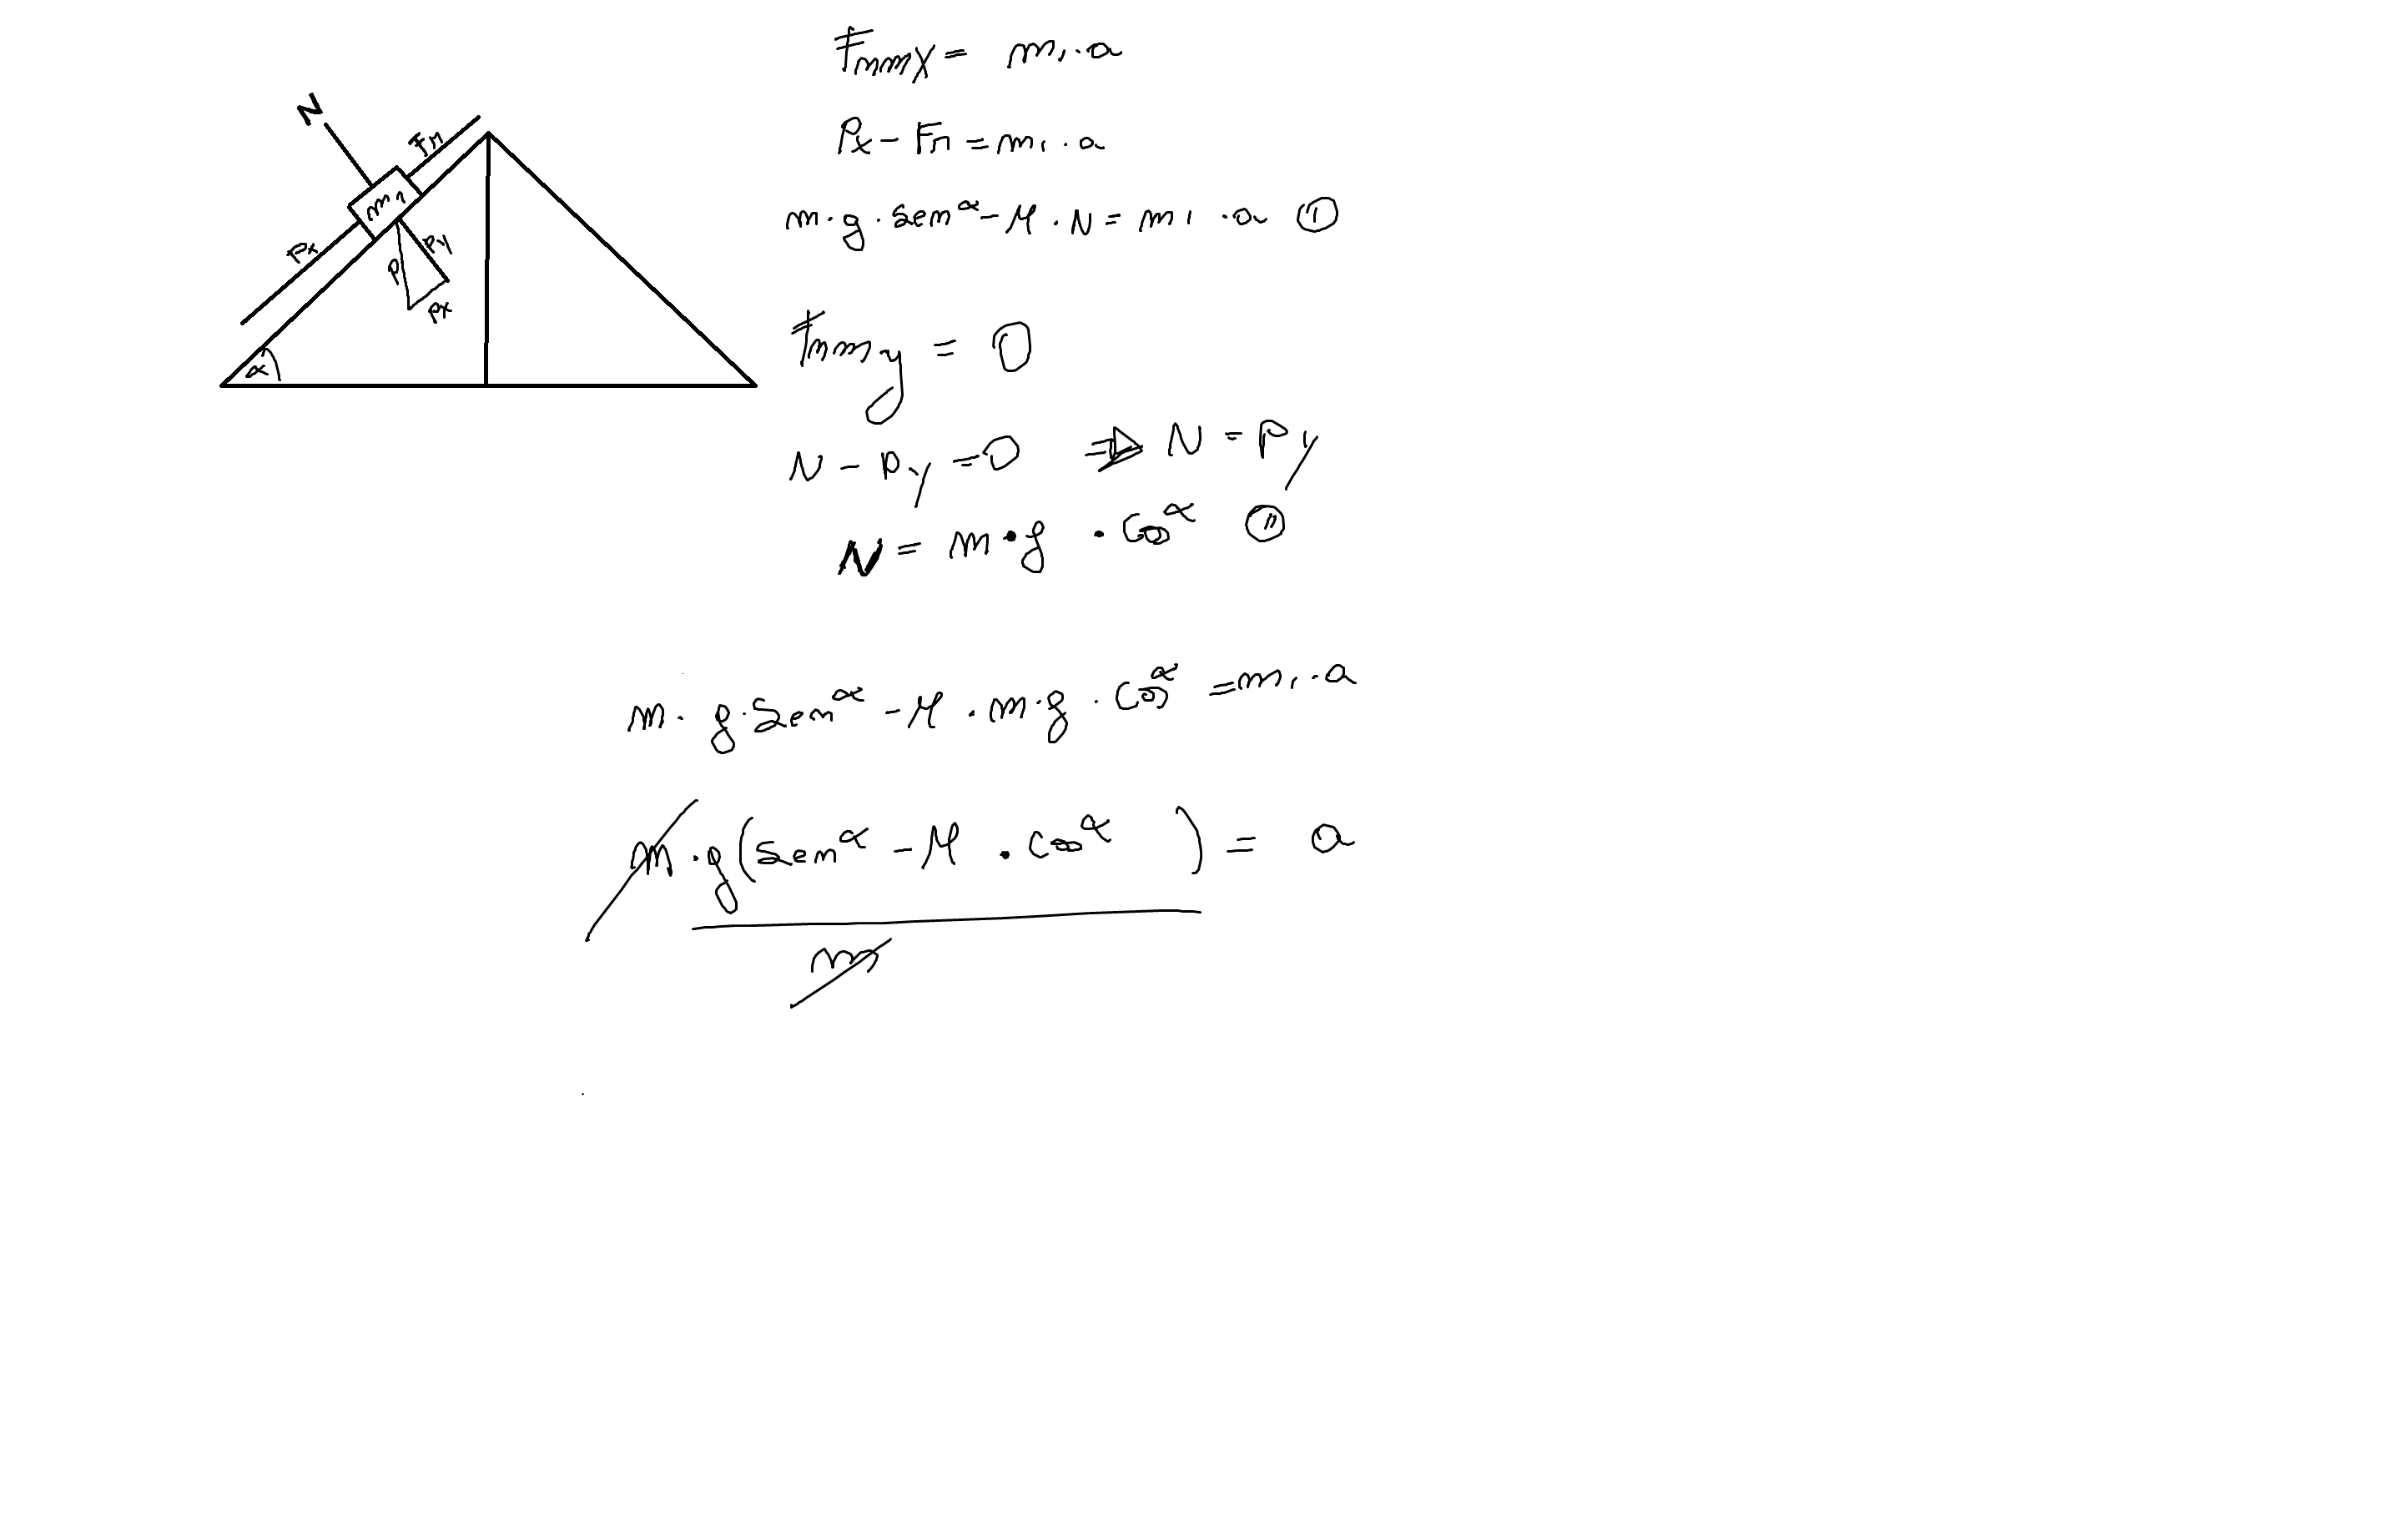 N
Fn
m1
Px
P
Py
Px
α
Fnmx = m1 · a
Px - Fn = m1 · a
m · g · sen α - μ · N = m1 · a ①
Fnmy = 0
N - Py = 0 ⇒ N = Py
N = m · g · cos α ⑪
m · g · sen α - μ · m · g · cos α = m1 · a
m · g (sen α - μ · cos α) = a
m1